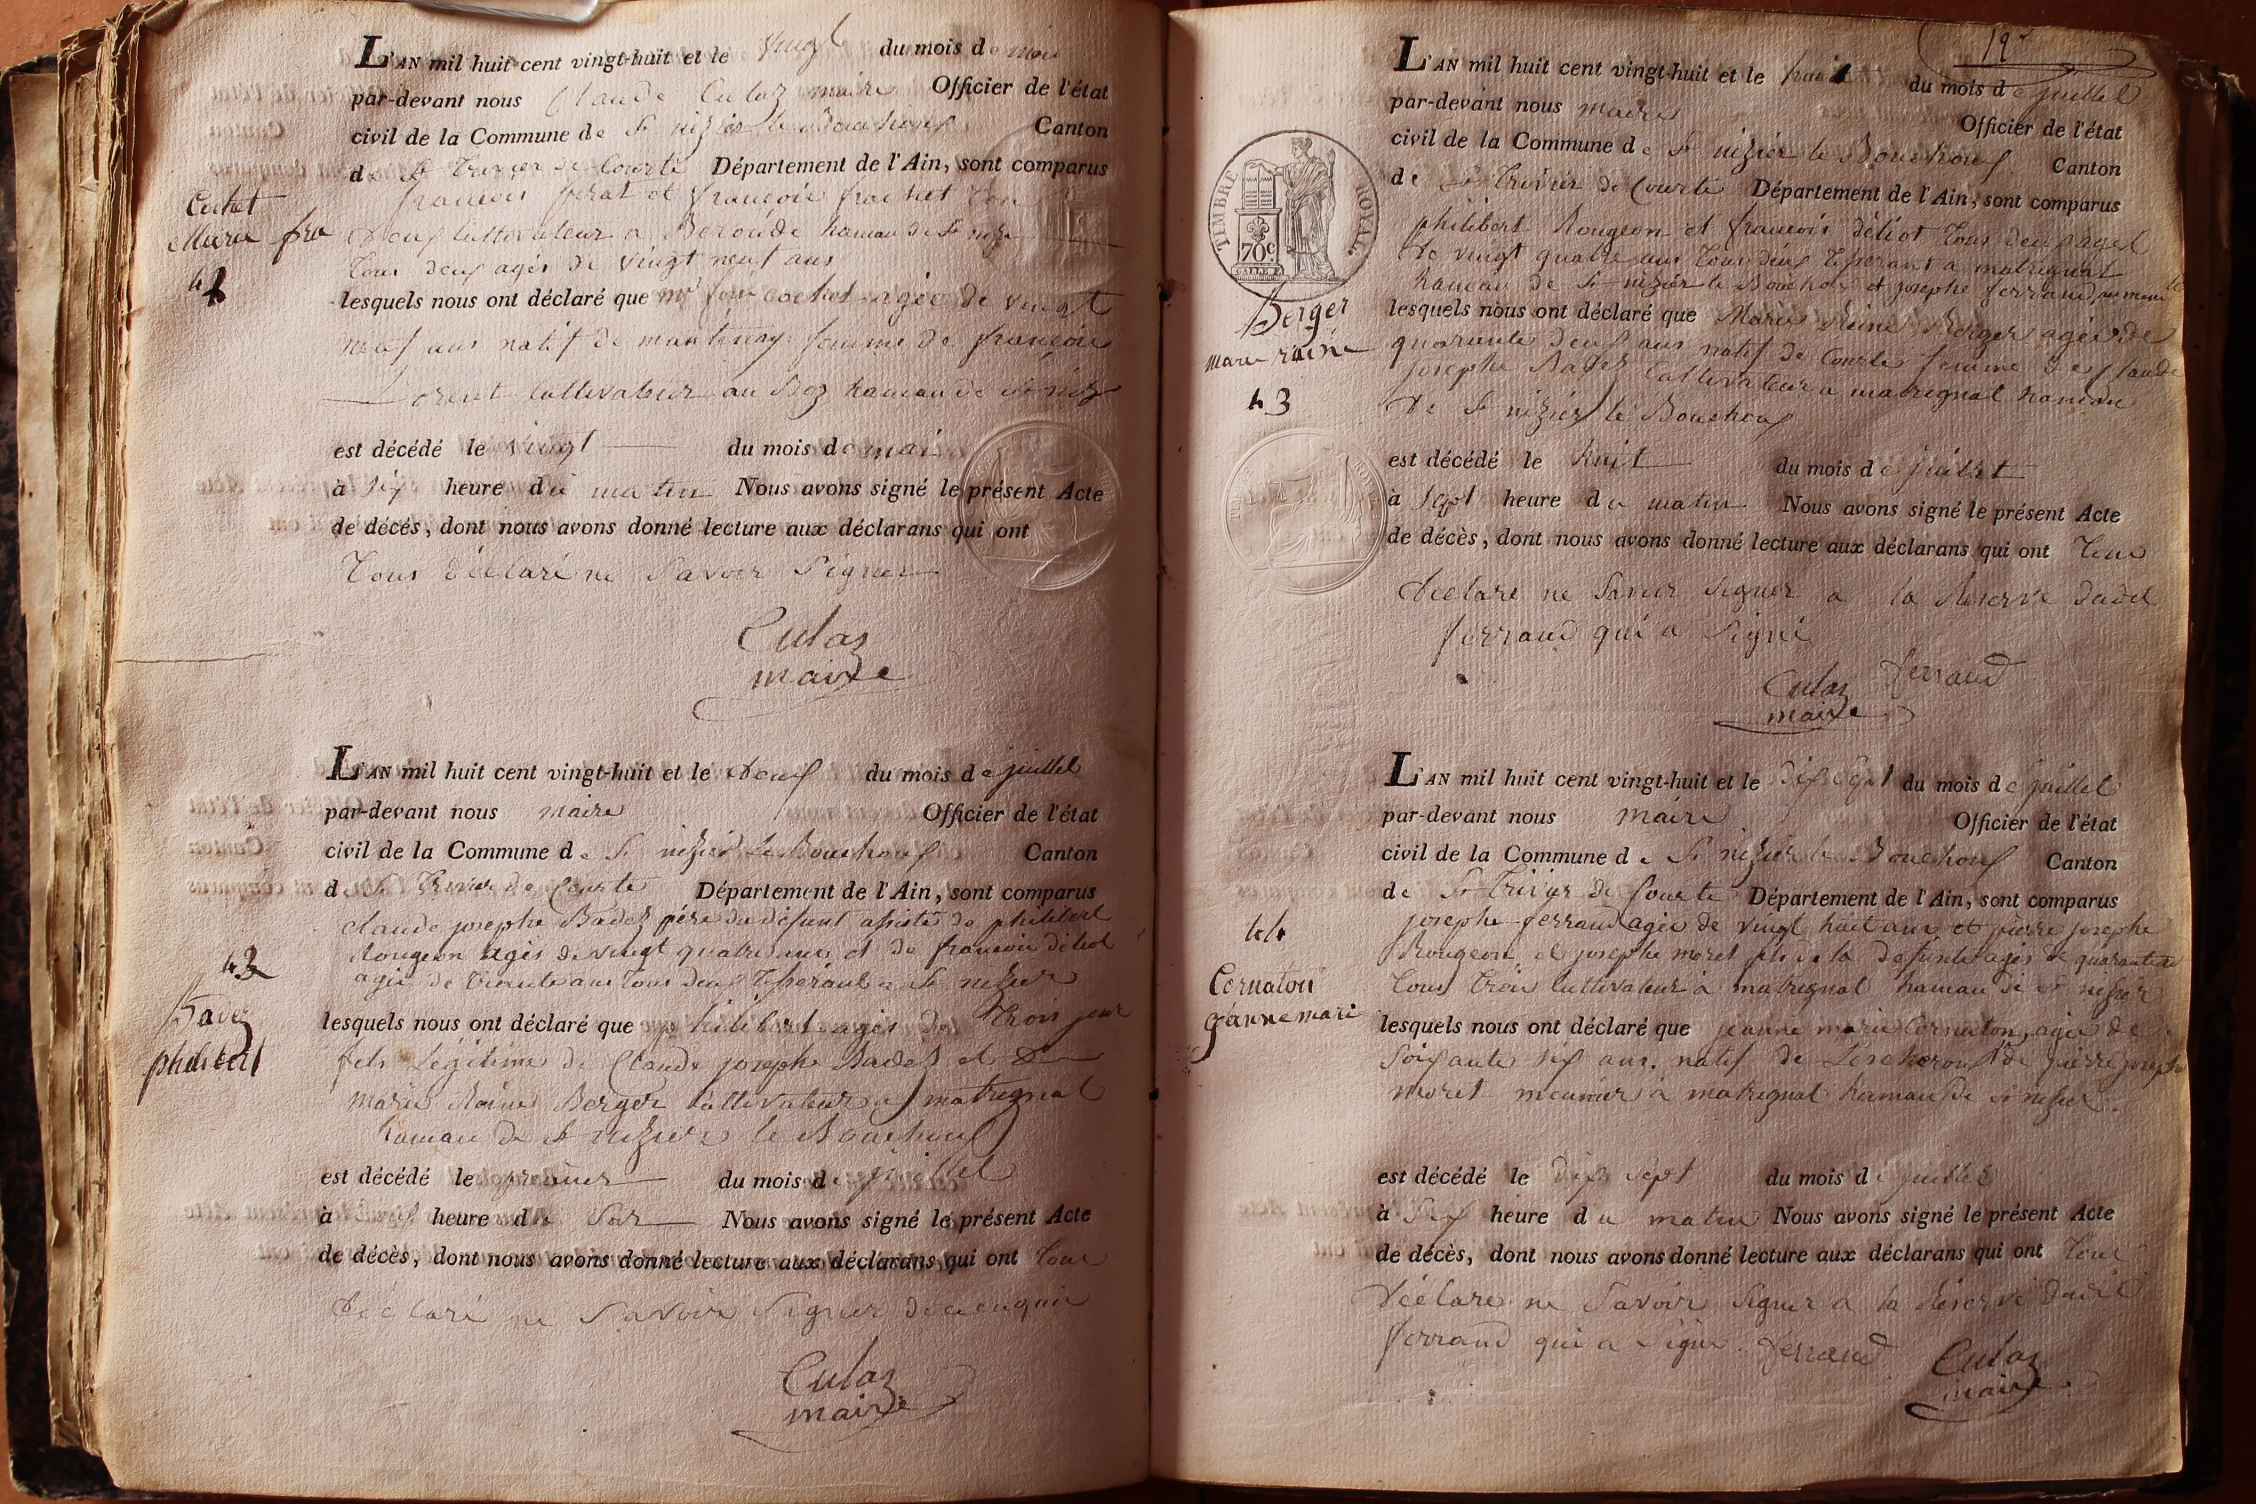 L'AN mil huit cent vingt-huit et le vingt du mois de mai
par-devant nous Claude Culaz maire Officier de l'état
civil de la Commune de St nizier le Bouchoux Canton
de St Trivier de Courte Département de l'Ain, sont comparus
françois ferat et françois
deux Cultivateur a hameau de St nizie
tous deux agés de vingt neuf ans
Cochet
Marie fra
41
lesquels nous ont déclaré que cochet agée de vingt
neuf ans natif de mantenay femme de françois
Lorent Cultivateur au Boz hameau de St niz
est décédé le vingt du mois de mai
à six heure du matin Nous avons signé le présent Acte
de décés, dont nous avons donné lecture aux déclarans qui ont
tous déclaré ne Savoir Signer
Culaz
maire
L'AN mil huit cent vingt-huit et le deux du mois de juillel
par-devant nous maire Officier de l'état
civil de la Commune de St nizier le Bouchoux Canton
d Trivier de Courte Département de l'Ain, sont comparus
Claude josephe Badez pére du défunt assisté de philibert
Rougeon agés de vingt quatre ans et de francoir déliot
agée de trente ans tous deux a St nizier
42
Badez
philibert
lesquels nous ont déclaré que philibert agés de trois jour
fils Légitime de Claude josephe Badez et de
marie Raine Berger Cultivateur a matregnat
hameau de St nizier le Bouchoux
est décédé le premier du mois de juillel
à six heure du soir Nous avons signé le présent Acte
de décès, dont nous avons donné lecture aux déclarans qui ont tous
déclaré ne Savoir Signer
Culaz
maire
19
L'AN mil huit cent vingt-huit et le huit du mois de juillel
par-devant nous maire Officier de l'état
civil de la Commune de St nizier le Bouchoux Canton
de St Trivier de Courte Département de l'Ain, sont comparus
philibert Rougeon et francois déliot tous deux agés
de vingt quatre ans tous deux a matregnat
hameau de St nizier le Bouchoux et josephe ferrand
TIMBRE ROYAL
70c
Berger
marie raine
43
lesquels nous ont déclaré que Marie Reine Berger agée de
quarante deux ans natif de Courte femme de Claude
josephe Badez Cultivateur a matregnat hameau
de St nizier le Bouchoux
est décédé le huit du mois de juilet
à sept heure du matin Nous avons signé le présent Acte
de décès, dont nous avons donné lecture aux déclarans qui ont tous
déclare ne Savoir Signer a la Réserve dudit
ferrand qui a Signé
Culaz ferrand
maire
L'AN mil huit cent vingt-huit et le dix sept du mois de juillel
par-devant nous maire Officier de l'état
civil de la Commune de St nizier le Bouchoux Canton
de St Trivier de Courte Département de l'Ain, sont comparus
josephe ferrand agée de vingt huit ans et pierre josephe
Rougeon et josephe moret fils de la defunte agés de quarante
tous trois Cultivateur a matregnat hameau de St nizier
44
Cornaton
janne mari
lesquels nous ont déclaré que jeanne marie Cornaton agée de
soixante six ans natif de Lescheroux de pierre josephe
moret meunier a matregnat hameau de St nizier
est décédé le dix sept du mois de juillel
à six heure du matin Nous avons signé le présent Acte
de décès, dont nous avons donné lecture aux déclarans qui ont tous
déclare ne Savoir Signer a la Réserve dudit
ferrand qui a signé ferrand Culaz
maire